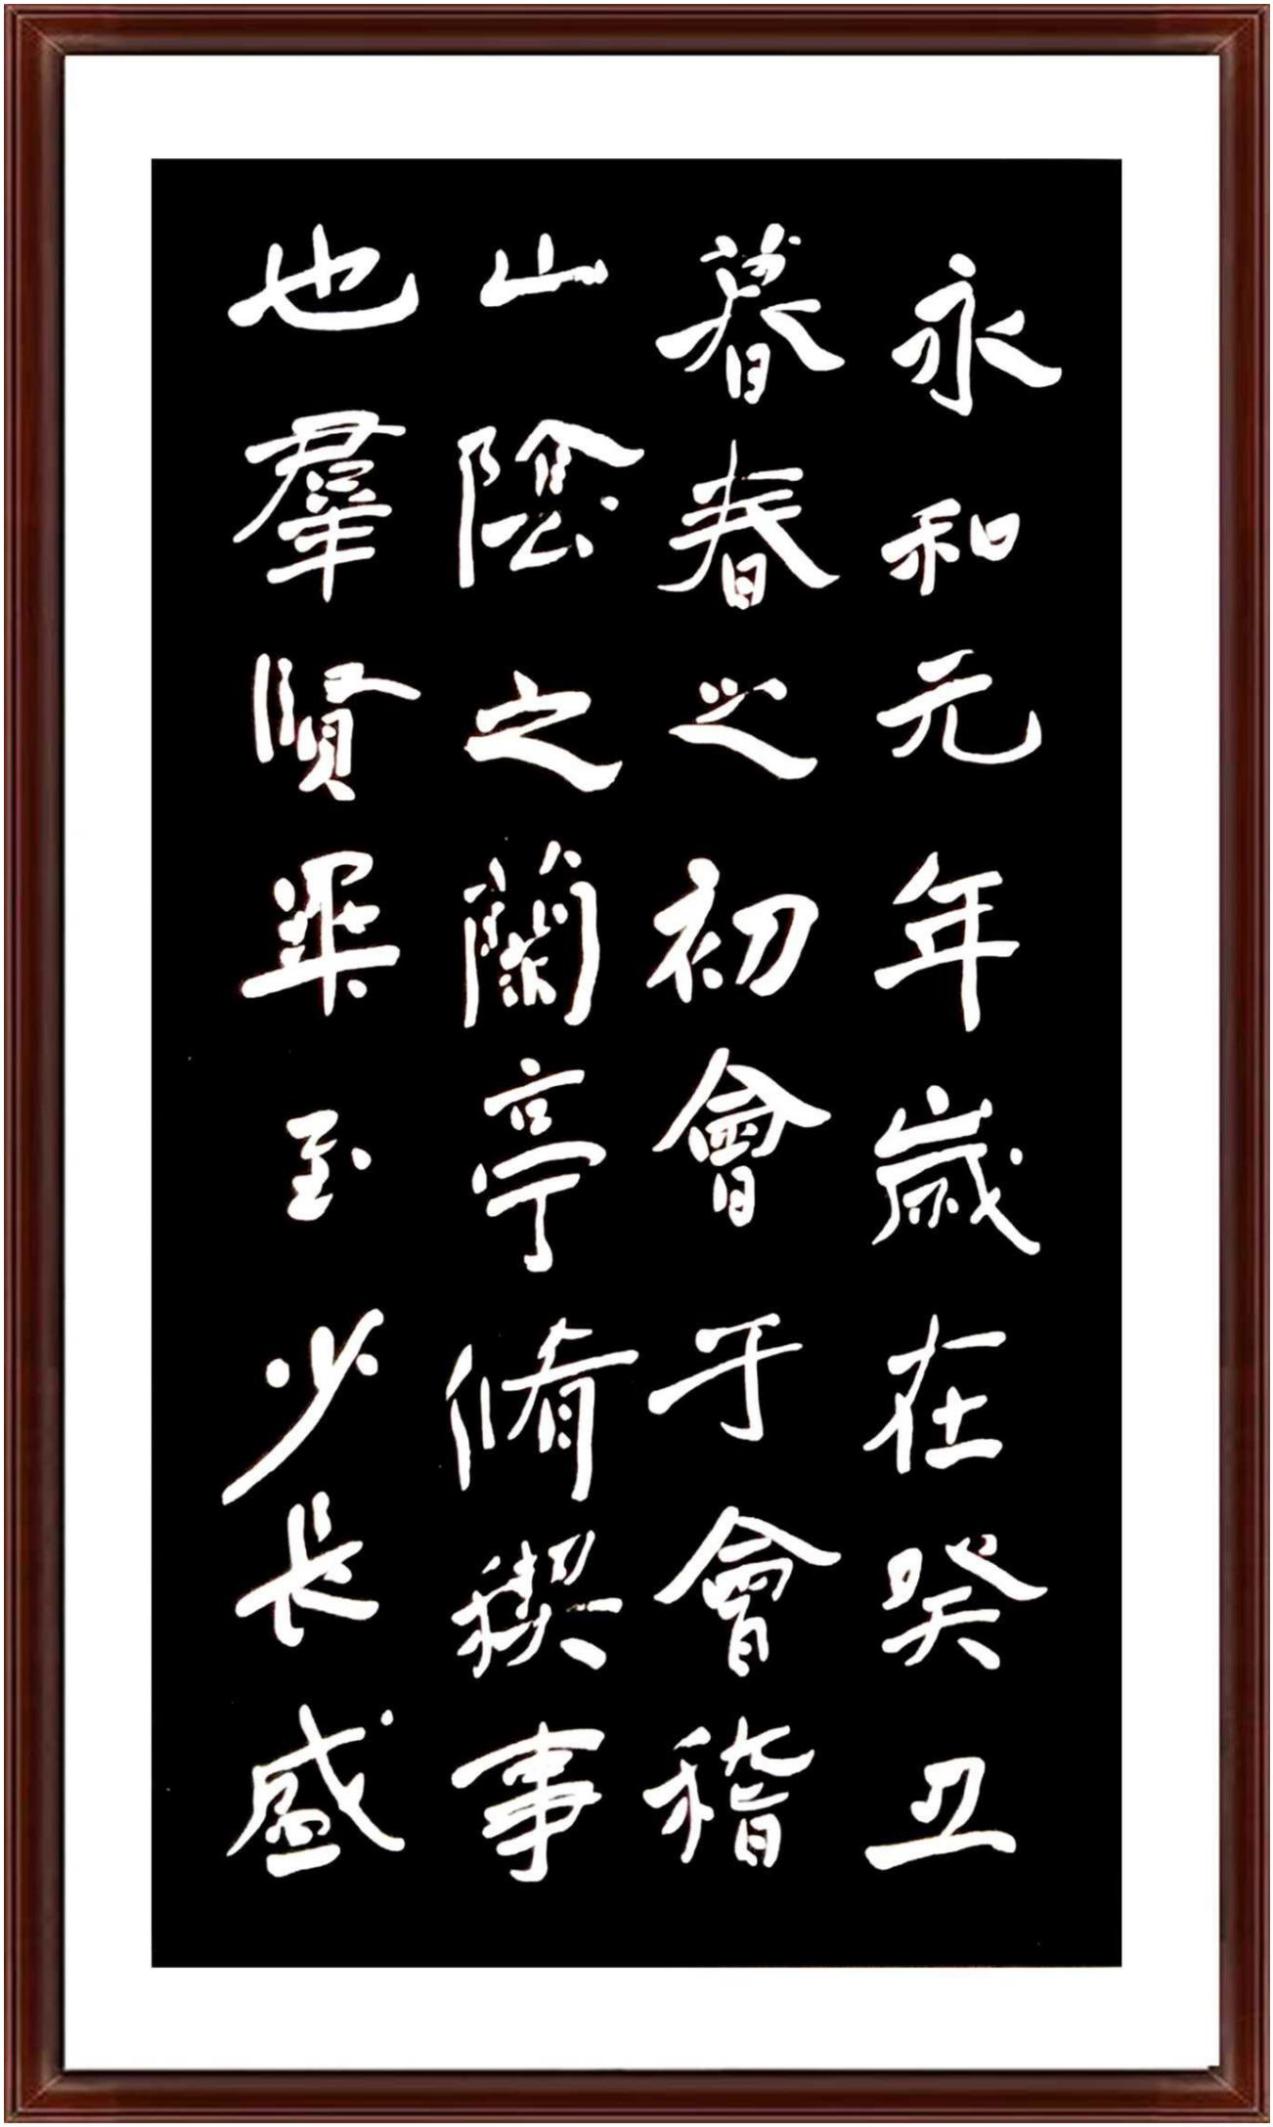 永和元年歲在癸丑
暮春之初會于會稽
山陰之蘭亭脩稧事
也羣賢畢至少長盛